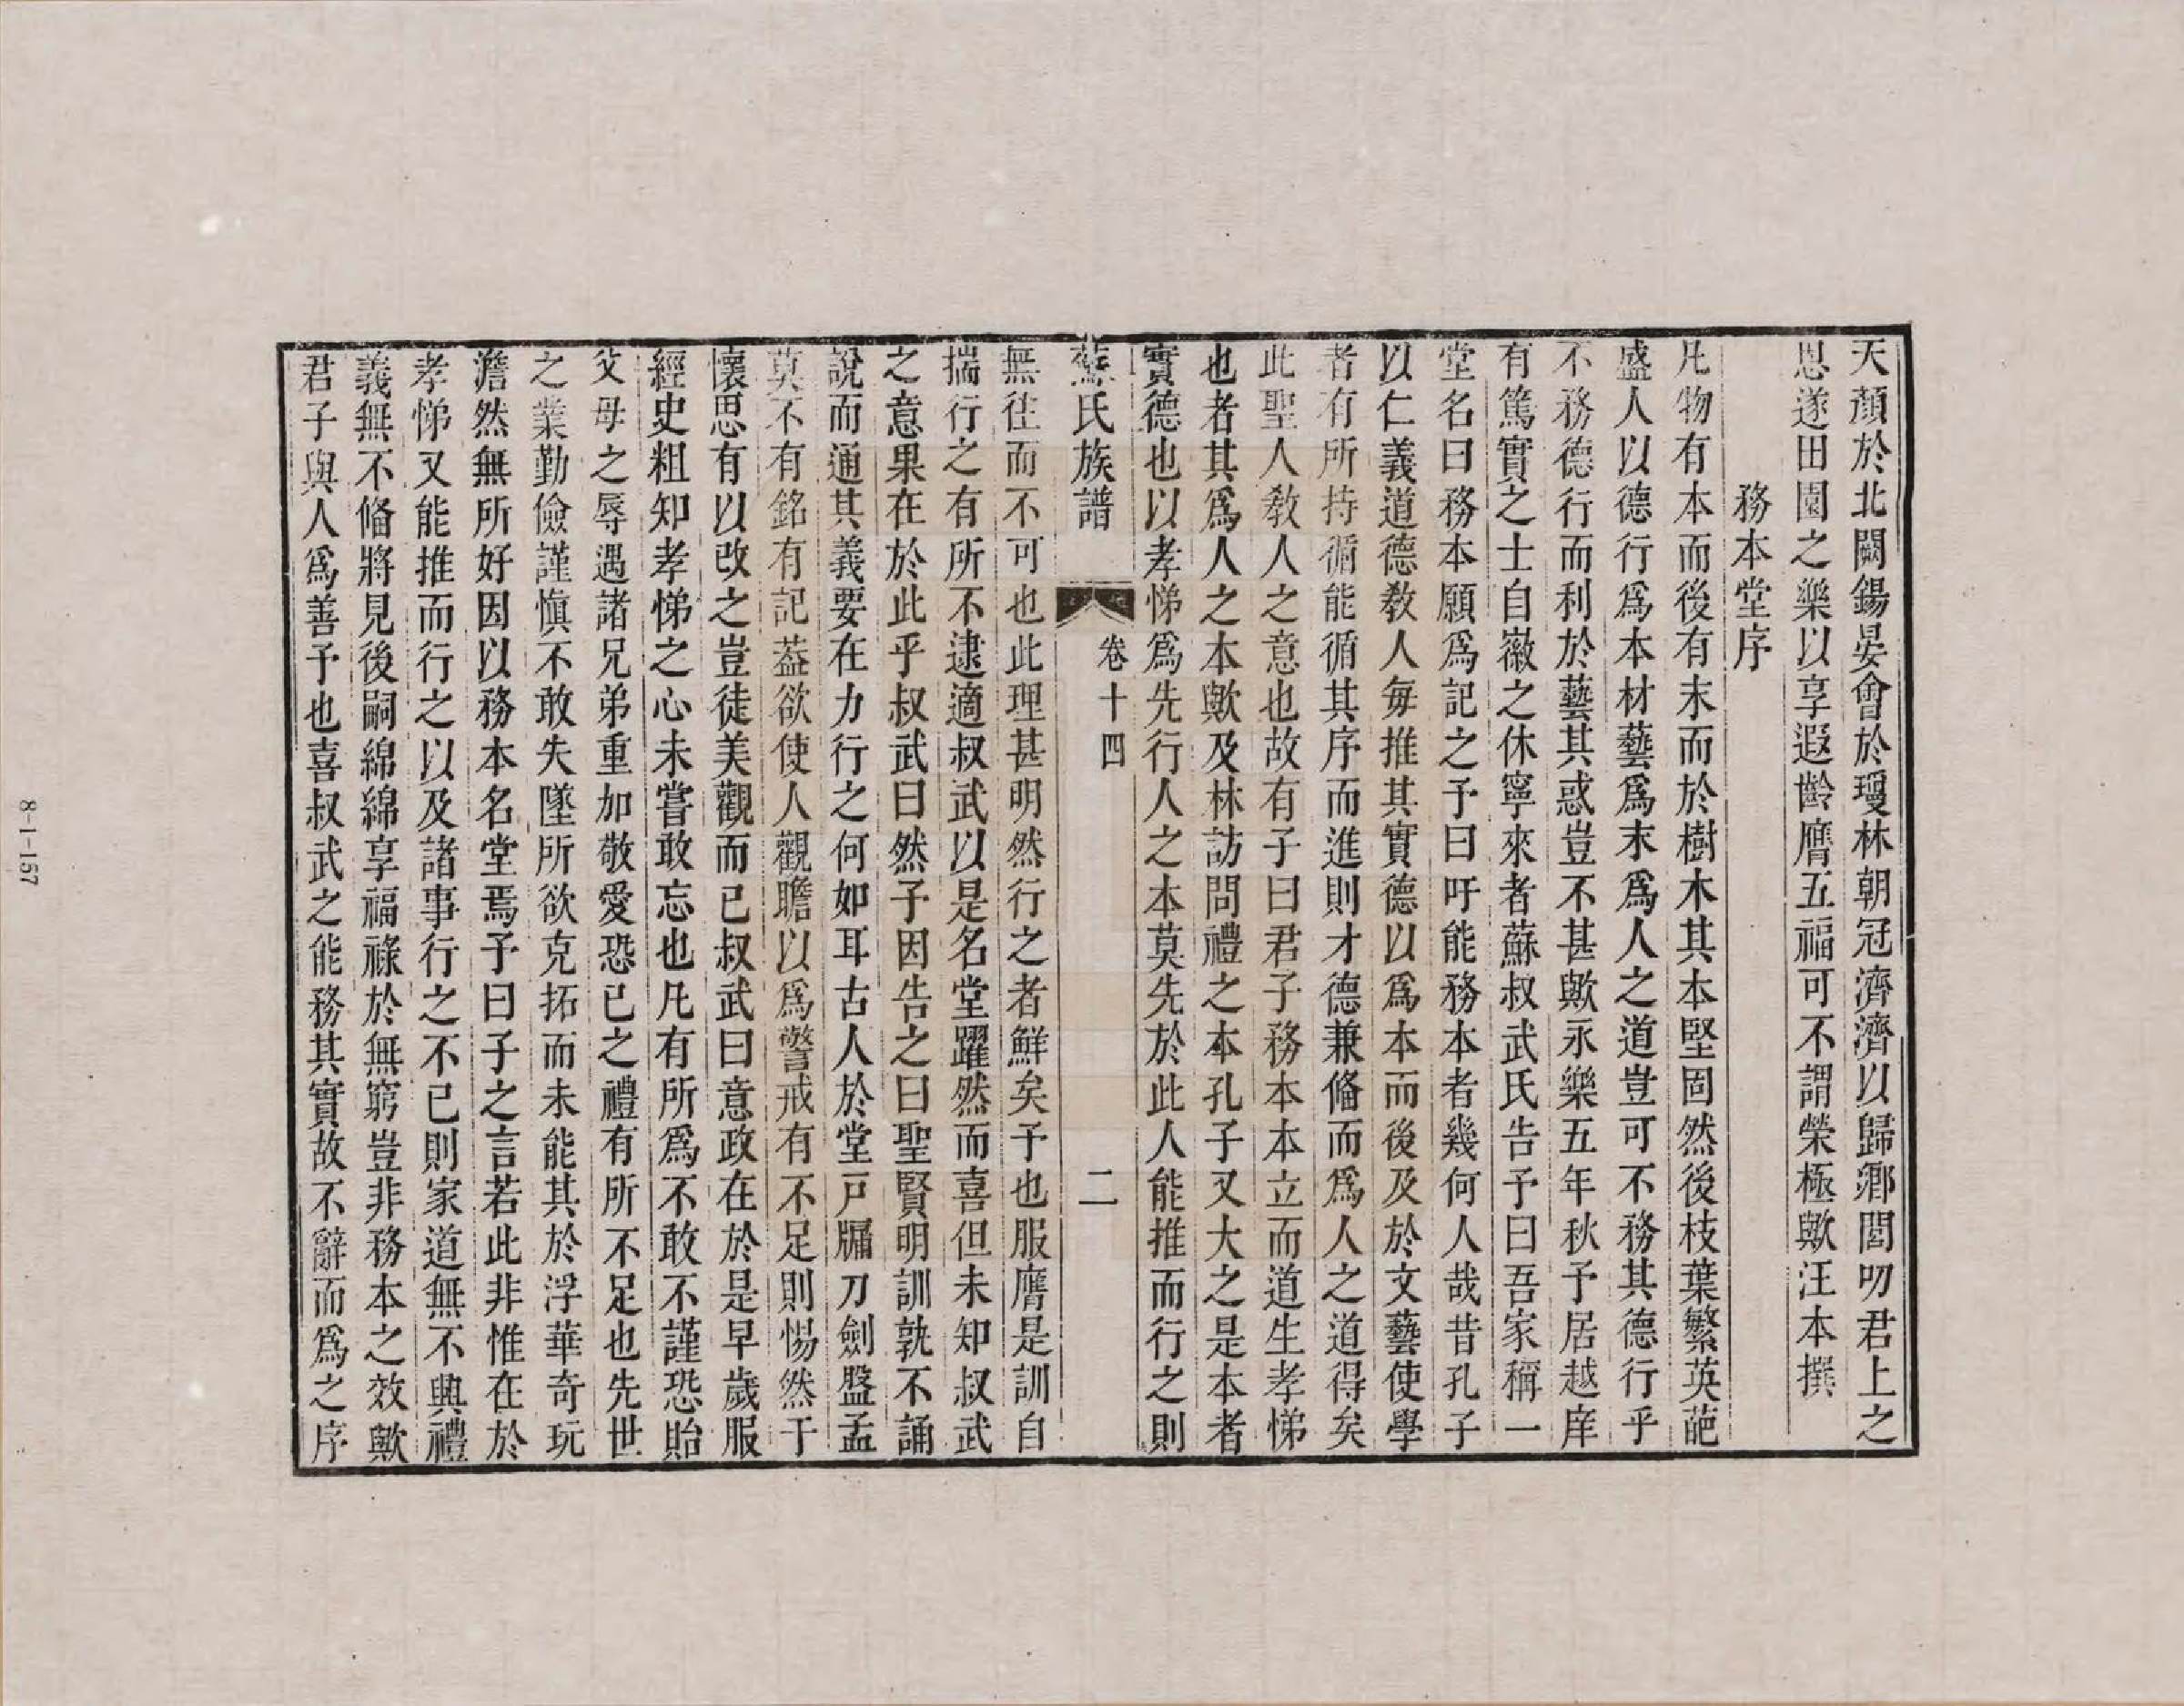 天顏於北闕錫晏會於瓊林朝冠濟濟以歸鄉閭叨君上之
恩遂田園之樂以享遐齡膺五福可不謂榮極歟汪本撰
務本堂序
凡物有本而後有末而於樹木其本堅固然後枝葉繁英葩
盛人以德行爲本材藝爲末爲人之道豈可不務其德行乎
不務德行而利於藝其惑豈不甚歟永樂五年秋予居越庠
有篤實之士自徽之休寧來者蘇叔武氏告予曰吾家稱一
堂名曰務本願爲記之予曰吁能務本者幾何人哉昔孔子
以仁義道德敎人每推其實德以爲本而後及於文藝使學
者有所持循能循其序而進則才德兼俻而爲人之道得矣
此聖人敎人之意也故有子曰君子務本本立而道生孝悌
也者其爲人之本歟及林訪問禮之本孔子又大之是本者
實德也以孝悌爲先行人之本莫先於此人能推而行之則
蘇氏族譜
卷十四
二
無徃而不可也此理甚明然行之者鮮矣予也服膺是訓自
揣行之有所不逮適叔武以是名堂躍然而喜但未知叔武
之意果在於此乎叔武曰然予因告之曰聖賢明訓孰不誦
說而通其義要在力行之何如耳古人於堂戸牖刀劍盤盂
莫不有銘有記葢欲使人觀瞻以爲警戒有不足則惕然于
懷思有以改之豈徒美觀而已叔武曰意政在於是早歲服
經史粗知孝悌之心未嘗敢忘也凡有所爲不敢不謹恐貽
父母之辱遇諸兄弟重加敬愛恐已之禮有所不足也先世
之業勤儉謹愼不敢失墜所欲克拓而未能其於浮華奇玩
澹然無所好因以務本名堂焉予曰子之言若此非惟在於
孝悌又能推而行之以及諸事行之不已則家道無不興禮
義無不俻將見後嗣綿綿享福祿於無窮豈非務本之效歟
君子與人爲善予也喜叔武之能務其實故不辭而爲之序
8-1-157